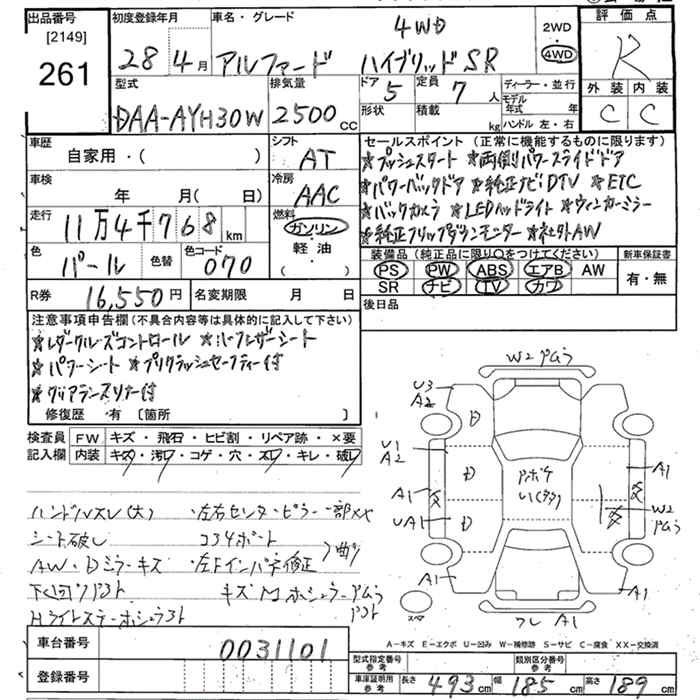 出品番号
[2149]
261
初度登録年月
28 4月
車名・グレード
4WD
アルファード ハイブリッドSR
2WD
4WD
評価点
R
外装 内装
C C
型式
DAA-AYH30W
排気量
2500 cc
ドア 5
形状
定員 7 人
積載 kg
ディーラー・並行
モデル年式 年
ハンドル 左・右
車歴
自家用・( )
シフト
AT
車検
年 月( 日)
冷房
AAC
走行
11万4千768 km
燃料
ガソリン
軽油
色
パール
色替
色コード
070
R券 16,550円
名変期限 月 日
セールスポイント(正常に機能するものに限ります)
★プッシュスタート ★両側パワースライドドア
★パワーバックドア ★純正ナビDTV ★ETC
★バックカメラ ★LEDヘッドライト ★ウィンカーミラー
★純正フリップダウンモニター ★社外AW
装備品(純正品に限り○をつけてください)
新車保証書
PS PW ABS エアB AW
SR ナビ TV カワ
有・無
後日品
注意事項申告欄(不具合内容等は具体的に記入して下さい)
★レダークルーズコントロール ★ハーフレザーシート
★パワーシート ★プリクラッシュセーフティー付
★クリアランスソナー付
修復歴・有 〔箇所 〕
検査員記入欄
FW キズ・飛石・ヒビ割・リペア跡・×要
内装 キズ・汚レ・コゲ・穴・スレ・キレ・破レ
ハンドルスレ(大) ・左右センターピラー一部××
シート破レ コアサポート
AW・Dミラーキズ ・左Fインパネ修正
下回り
W2
U3
A2
U1
A2
A1
UA1
A1
D
D
D
U1
A1
W2
A1
A1
スペア
A-キズ E-エクボ U-凹み W-補修跡 S-サビ C-腐食 XX-交換済
車台番号
0031101
登録番号
型式指定番号 参考
類別区分番号 参考
車庫証明用 参考
長さ 493 cm 幅 185 cm 高さ 189 cm